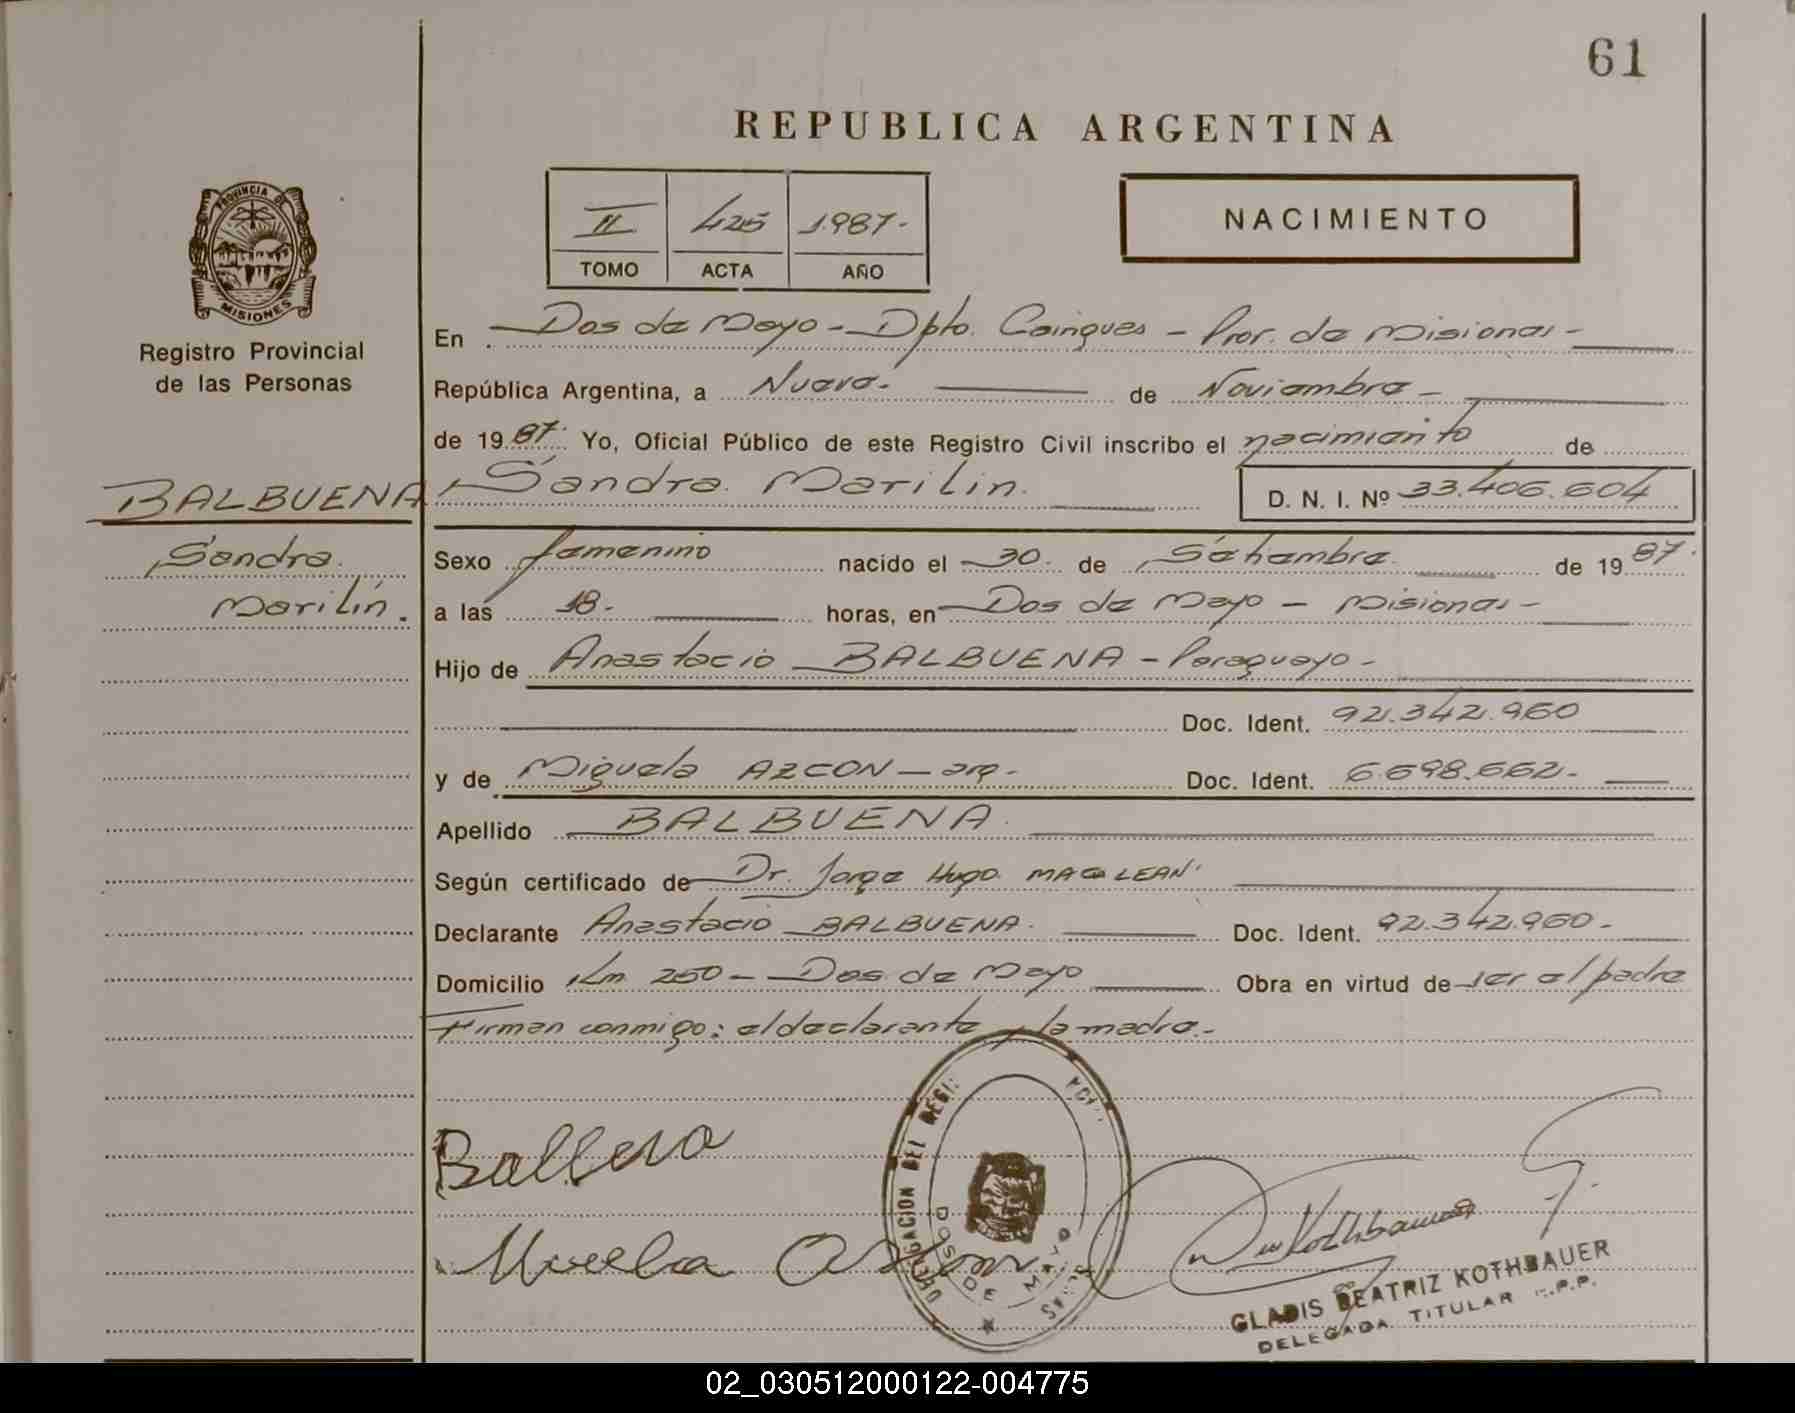 61
REPUBLICA ARGENTINA
II 425 1987.-
TOMO ACTA AÑO
NACIMIENTO
PROVINCIA DE
MISIONES
Registro Provincial
de las Personas
En Dos de Mayo - Dpto. Cainguas - Prov. de Misiones -
República Argentina, a Nueve.- de Noviembre -
de 19 87. Yo, Oficial Público de este Registro Civil inscribo el nacimiento de
BALBUENA Sandra Marilin. D. N. I. Nº 33.406.604
Sandra
Marilin.
Sexo femenino nacido el 30. de Setiembre de 19 87.
a las 18.- horas, en Dos de Mayo - Misiones -
Hijo de Anastacio BALBUENA - Paraguayo -
Doc. Ident. 92.342.960
y de Miguela AZCON - arg. Doc. Ident. 6.698.662.-
Apellido BALBUENA.
Según certificado de Dr. Jorge Hugo MACLEAN
Declarante Anastacio BALBUENA. Doc. Ident. 92.342.960.-
Domicilio Km 250 - Dos de Mayo Obra en virtud de ser el padre
Firman conmigo: el declarante y la madre.-
DELEGACION DEL
DOS DE MAYO
GLADIS BEATRIZ KOTHBAUER
DELEGADA TITULAR
02_030512000122-004775